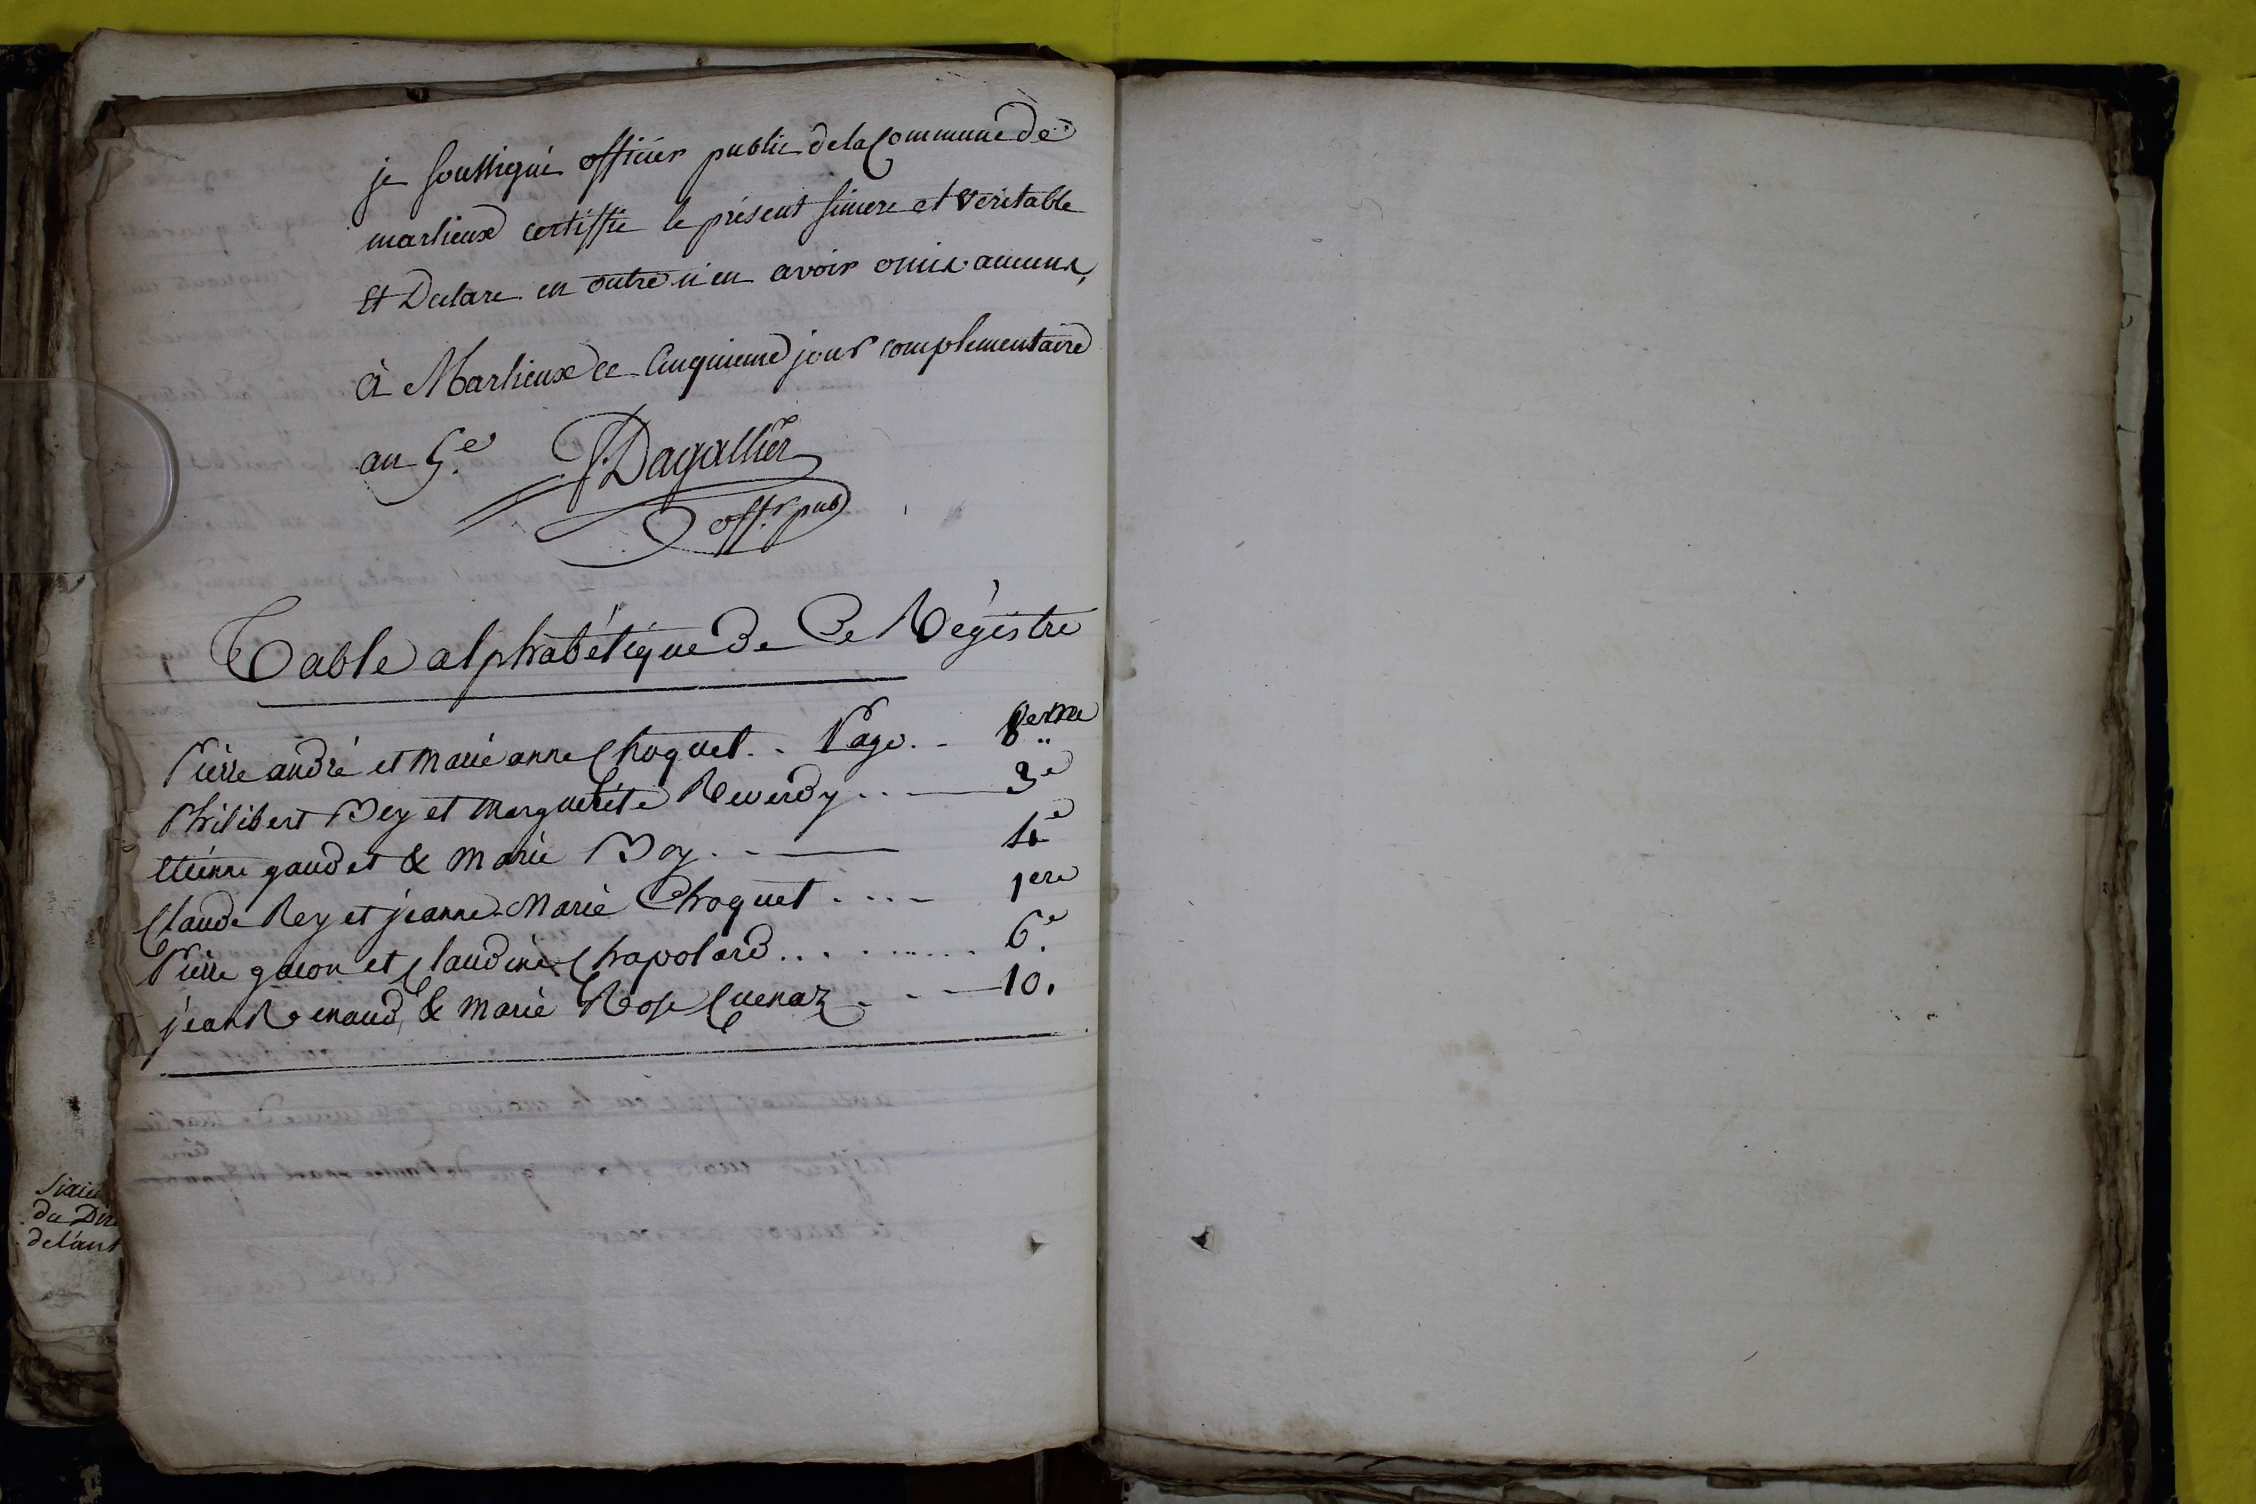 je soussigné officier public de la Commune de
marlieux certiffie le présent sincere et veritable
et Declare en outre n'en avoir omis aucuns,
à Marlieux ce Cinquieme jour complementaire
an 5.e J. Dagallier
off.r pub
Table alphabétique de Ce Régistre
Pierre andré et Marie anne Choquet. - Page. - 8eme
Philibert Bey et Marguerite Reverdy . . — 3e
Etienne gaudet & Marie Bey. - — 4e
Claude Rey et jeanne-Marie Choquet . . . . - 1ere
Pierre gacon et Claudine Chapolard . . . . . . . . . 6.e
jean Renaud, & Marie Rose Cuenaz - - — 10.
du Dire